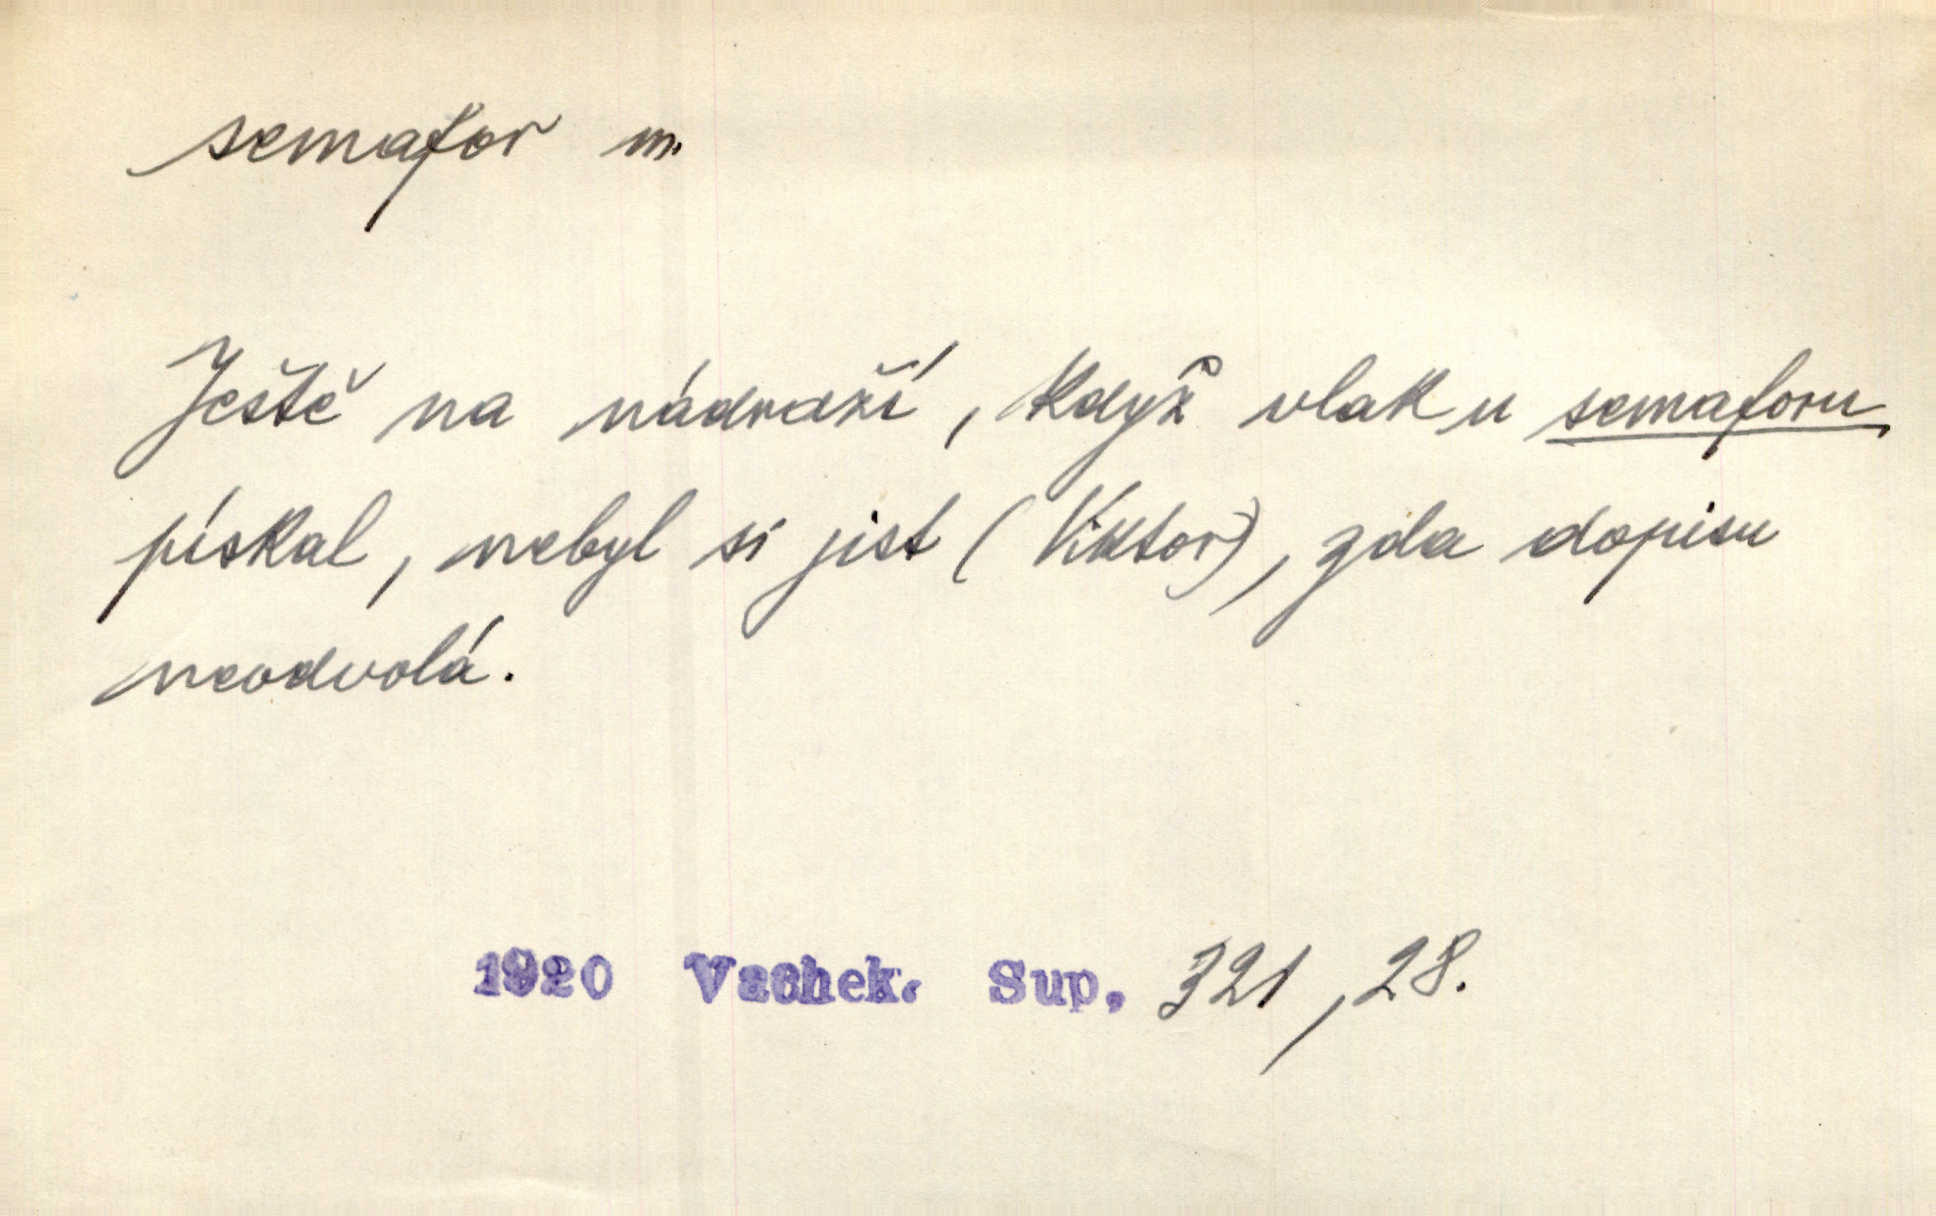 semafor m.
Ještě na nádraží, když vlak u semaforu
pískal, nebyl si jist (Viktor), zda dopisu
neodvolá.
1920 Vachek. Sup. 321, 28.